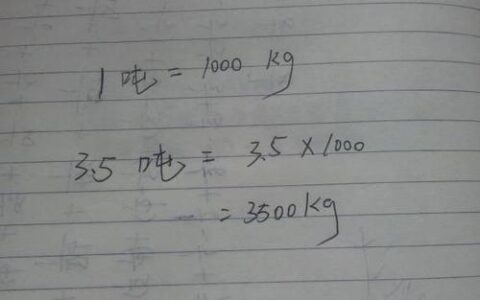 1吨 = 1000 kg
3.5 吨 = 3.5 × 1000
= 3500 kg